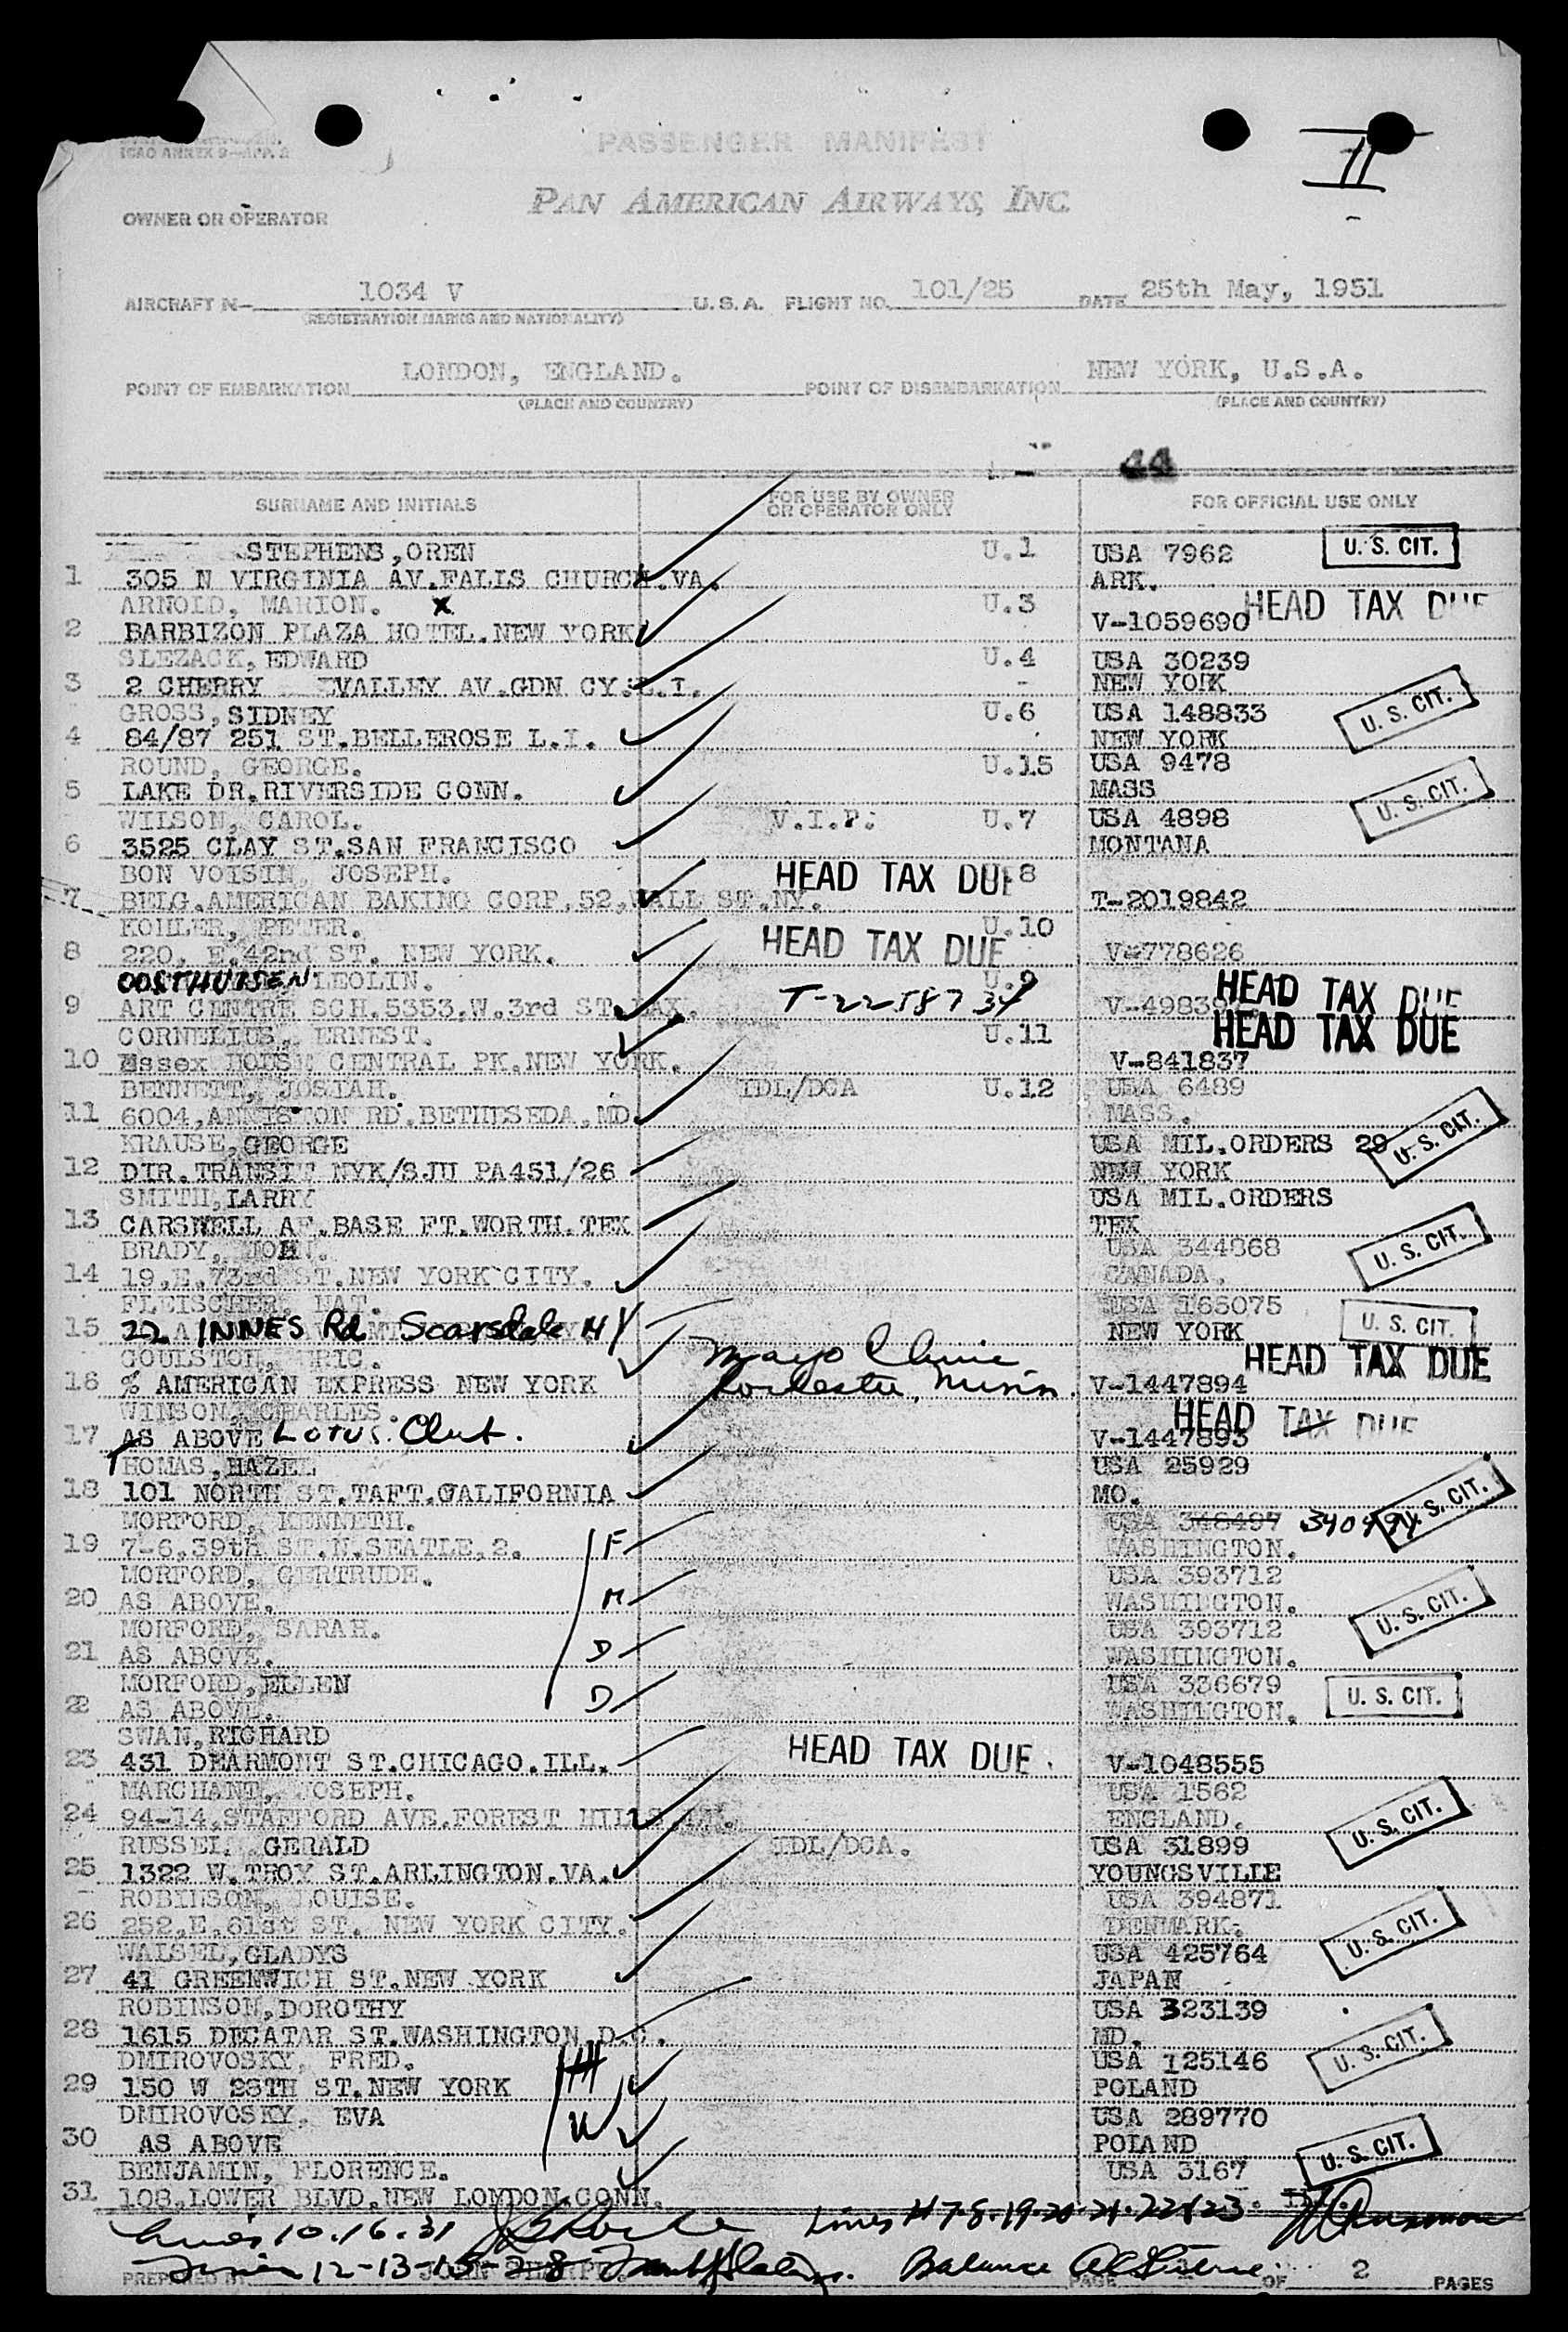 ICAO ANNEX 9—APP. 2
PASSENGER MANIFEST
II
PAN AMERICAN AIRWAYS, INC.
OWNER OR OPERATOR
AIRCRAFT N— 1034 V U.S.A. FLIGHT NO. 101/25 DATE 25th May, 1951
(REGISTRATION MARKS AND NATIONALITY)
POINT OF EMBARKATION LONDON, ENGLAND. POINT OF DISEMBARKATION NEW YORK, U.S.A.
(PLACE AND COUNTRY) (PLACE AND COUNTRY)
44
SURNAME AND INITIALS FOR USE BY OWNER OR OPERATOR ONLY FOR OFFICIAL USE ONLY
STEPHENS,OREN U.1 USA 7962 U. S. CIT.
1 305 N VIRGINIA AV.FALLS CHURCH.VA. ARK.
ARNOLD, MARION. X U.3 HEAD TAX DUE
2 BARBIZON PLAZA HOTEL.NEW YORK V-1059690
SLEZACK,EDWARD U.4 USA 30239
3 2 CHERRY VALLEY AV.GDN CY.L.I. NEW YORK
GROSS,SIDNEY U.6 USA 148833 U. S. CIT.
4 84/87 251 ST.BELLEROSE L.I. NEW YORK
ROUND, GEORGE. U.15 USA 9478
5 LAKE DR.RIVERSIDE CONN. MASS U. S. CIT.
WILSON, CAROL. V.I.P. U.7 USA 4898
6 3525 CLAY ST.SAN FRANCISCO MONTANA
BON VOISIN, JOSEPH. HEAD TAX DUE U.8
7 BELG.AMERICAN BAKING CORP.52,WALL ST.NY. T-2019842
KOHLER, PETER. U.10
8 220, E.42nd ST. NEW YORK. HEAD TAX DUE V-778626
OOSTHUISEN LEOLIN. U.9 HEAD TAX DUE
9 ART CENTRE SCH.5353.W.3rd ST. T-2258734 V-4983
CORNELIUS, ERNEST. U.11 HEAD TAX DUE
10 Essex HOUSE CENTRAL PK.NEW YORK. V-841837
BENNETT, JOSIAH. IDL/DCA U.12 USA 6489
11 6004,ANNISTON RD.BETHESEDA,MD. MASS. U. S. CIT.
KRAUSE,GEORGE USA MIL.ORDERS 29
12 DIR.TRANSIT NYK/SJU PA451/26 NEW YORK
SMITH,LARRY USA MIL.ORDERS
13 CARSWELL AF.BASE FT.WORTH.TEX TEX
BRADY, JOHN. USA 344868 U. S. CIT.
14 19,E,73rd ST.NEW YORK CITY. CANADA.
FLEISCHER, NAT. USA 165075 U. S. CIT.
15 22 INNES Rd Scarsdale NY NEW YORK
GOULSTON, ERIC. Mayo Clinic HEAD TAX DUE
16 % AMERICAN EXPRESS NEW YORK Rochester, Minn. V-1447894
WINSON, CHARLES. HEAD TAX DUE
17 AS ABOVE Lotus Club. V-1447893
THOMAS,HAZEL USA 25929
18 101 NORTH ST.TAFT.CALIFORNIA MO. U. S. CIT.
MORFORD, KENNETH. USA 348497
19 7-6,39th ST.N.SEATLE,2. F WASHINGTON.
MORFORD, GERTRUDE. USA 393712
20 AS ABOVE. M WASHINGTON. U. S. CIT.
MORFORD, SARAH. USA 393712
21 AS ABOVE. D WASHINGTON.
MORFORD,ELLEN USA 336679 U. S. CIT.
22 AS ABOVE. D WASHINGTON.
SWAN,RICHARD HEAD TAX DUE
23 431 DEARMONT ST.CHICAGO.ILL. V-1048555
MARCHANT, JOSEPH. USA 1562
24 94-14,STAFFORD AVE.FOREST HILLS ENGLAND. U. S. CIT.
RUSSEL, GERALD IDL/DCA. USA 31899
25 1322 W.TROY ST.ARLINGTON.VA. YOUNGSVILLE
ROBINSON, LOUISE. USA 394871
26 252,E,61st ST. NEW YORK CITY. DENMARK. U. S. CIT.
WALSEL,GLADYS USA 425764
27 41 GREENWICH ST.NEW YORK JAPAN
ROBINSON,DOROTHY USA 323139
28 1615 DECATAR ST.WASHINGTON.D.C. MD. U. S. CIT.
DMIROVOSKY, FRED. USA 125146
29 150 W 28TH ST.NEW YORK H POLAND
DMIROVOSKY, EVA USA 289770
30 AS ABOVE W POLAND U. S. CIT.
BENJAMIN, FLORENCE. USA 3167
31 108,LOWER BLVD.NEW LONDON.CONN.
Lines 10.16.31 Lines # 7-8-19-20-21-22&23
Lines 12-13-15-28 Balance
PREPARED BY PAGE OF 2 PAGES